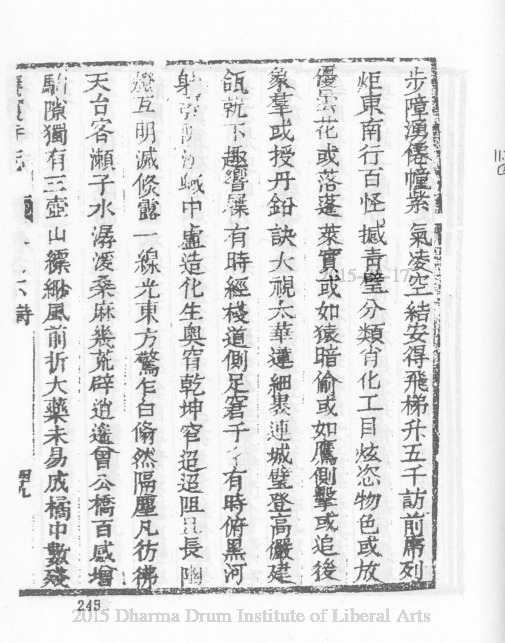 步障湧僊幢紫氣凌空結安得飛梯升五千訪前席列
炬東南行百怪撼青壁分類肖化工目炫恣物色或放
優雲花或落蓬萊實或如猿暗偷或如鷹側擊或追後
象羣或授丹鉛訣大視太華蓮細裹連城璧登高儼建
瓴就下趣響屧有時經棧道側足窘千有時俯黑河
中盧造化生奧窅乾坤窄迢迢阻且長幽
互明滅倏露一線光東方驚乍白翛然隔塵凡彷彿
天台客瀨子水潺湲桑麻幾荒辟逍遙曾公橋百感增
駒隙獨有三壺山縹緲風前折大藥未易成橘中數殘
詩
245
2015 Dharma Drum Institute of Liberal Arts